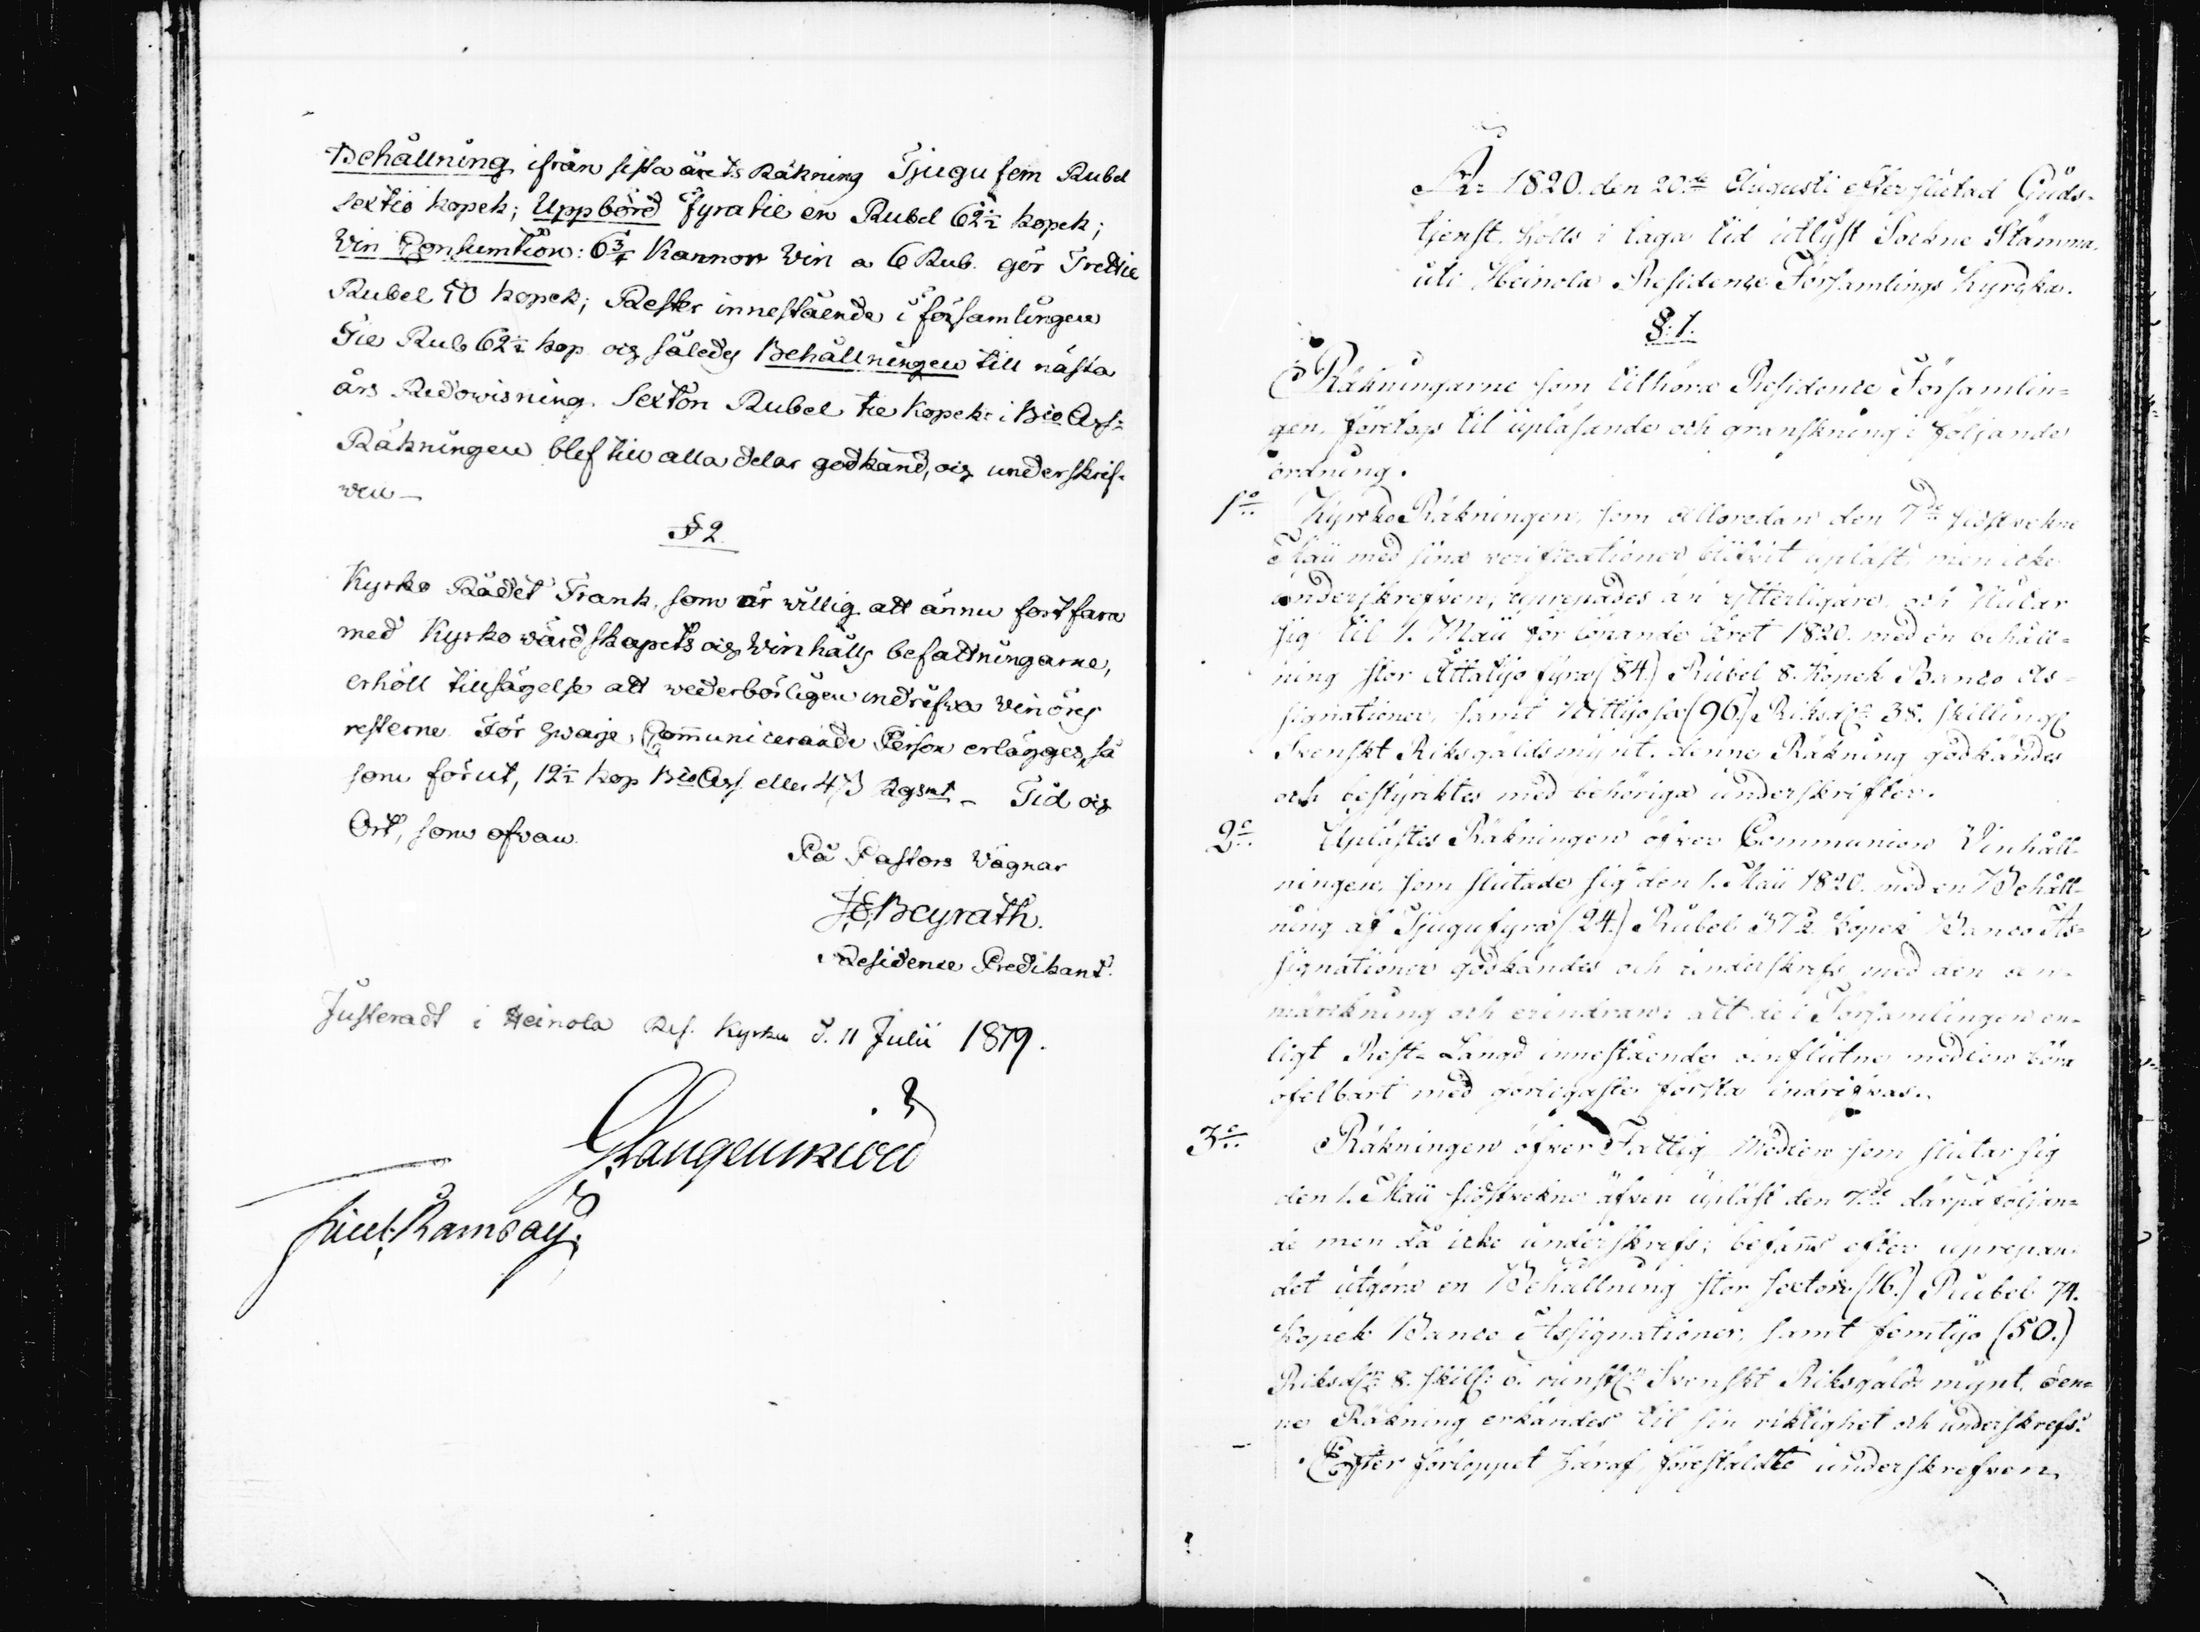 Behållning ifrån sista årets Räkning Tjugu fem Rubel
sextio kopek; Uppbörd fyratie en Rubel 62½ kopek;
Win Consumtion: 6¾ Kannor Win a 6 Rub. gör Fretie
Rubel 50 kopek; Rester innestående i församlingen
Tie Rub 62½ kop. och således Behållningen till nästa
års Redowisning. Sexton Rubel tie Kopek i Bco Ass:
Räkningen blef till alla delar godkänd, och underskrif-
wen –
§ 2.
Kyrko Rådet Frank, som är willig att ännu fortfara
med Kyrko wärdskapets och Winhålls befattningarne,
erhöll tillsägelse att wederbörligen indrifwa Winörs
resterne. För hwarje Communicerande Person erlägges, så
som förut, 12½ kop Bco Ass. eller 4 β Rgsmt – Tid och
Ort, som ofvan.
På Pastors Wägnar
J.E. Beyrath.
Residence Predikant.
Justeradt i Heinola Res. Kyrka d. 11 Julii 1819.
G Langenskiöld
Ramsay.
År 1820. den 20de Augusti efter slutad Guds-
tjenst, hölls i laga tid utlyst Sockne Stämma,
uti Heinola Residence Församlings Kyrcka.
§. 1.
Räkningarne som tilhöra Residence Församlin=
gen, företogs til upläsande och granskning i följande
ordning.
1o Kyrko Räkningen, som allaredan den 7de sidstvekne
Maii med sina verificationer blifvit upläst, men icke
underskrefven, uprepades än ytterligare, och slutar
sig til 1. Maii för löpande Året 1820. med en behåll=
ning stor Åttatijo fyra (84.) Rubel 8. Kopek Banco As=
signationer, samt Nittijo sex (96.) Riksd:r 38. skilling
Svenskt Riksgäldsmynt. denna Räkning godkändes
och bestyrktes med behöriga underskrifter.
2o Uplästes Räkningen öfver Communion Vinhåll=
ningen, som slutade sig den 1. Maii 1820. med en Behåll=
ning af Tjugufyra (24.) Rubel 37½ Kopek Banco As=
signationer godkändes och underskrefs med den an=
märckning och erindran: att de i Församlingen en=
ligt Rest-Längd innestående oinflutne medlen böra
ofelbart med görligaste första indrifvas.
3o Räkningen öfver Fattig Medlen som slutar sig
den 1. Maii sidstvekne äfven upläst den 7de därpåföljan=
de men då icke underskrefs; befanns efter uprepan=
det utgöra en Behållning stor sexton (16.) Rubel 74.
Kopek Banco Assignationer, samt femtijo (50.)
Riksd:r 8. skill: 6. runst:r Svenskt Riksgälds mynt, den=
na Räkning erkändes til sin riktighet och underskrefs.
Efter förloppet häraf, föreställdte underskrefven,